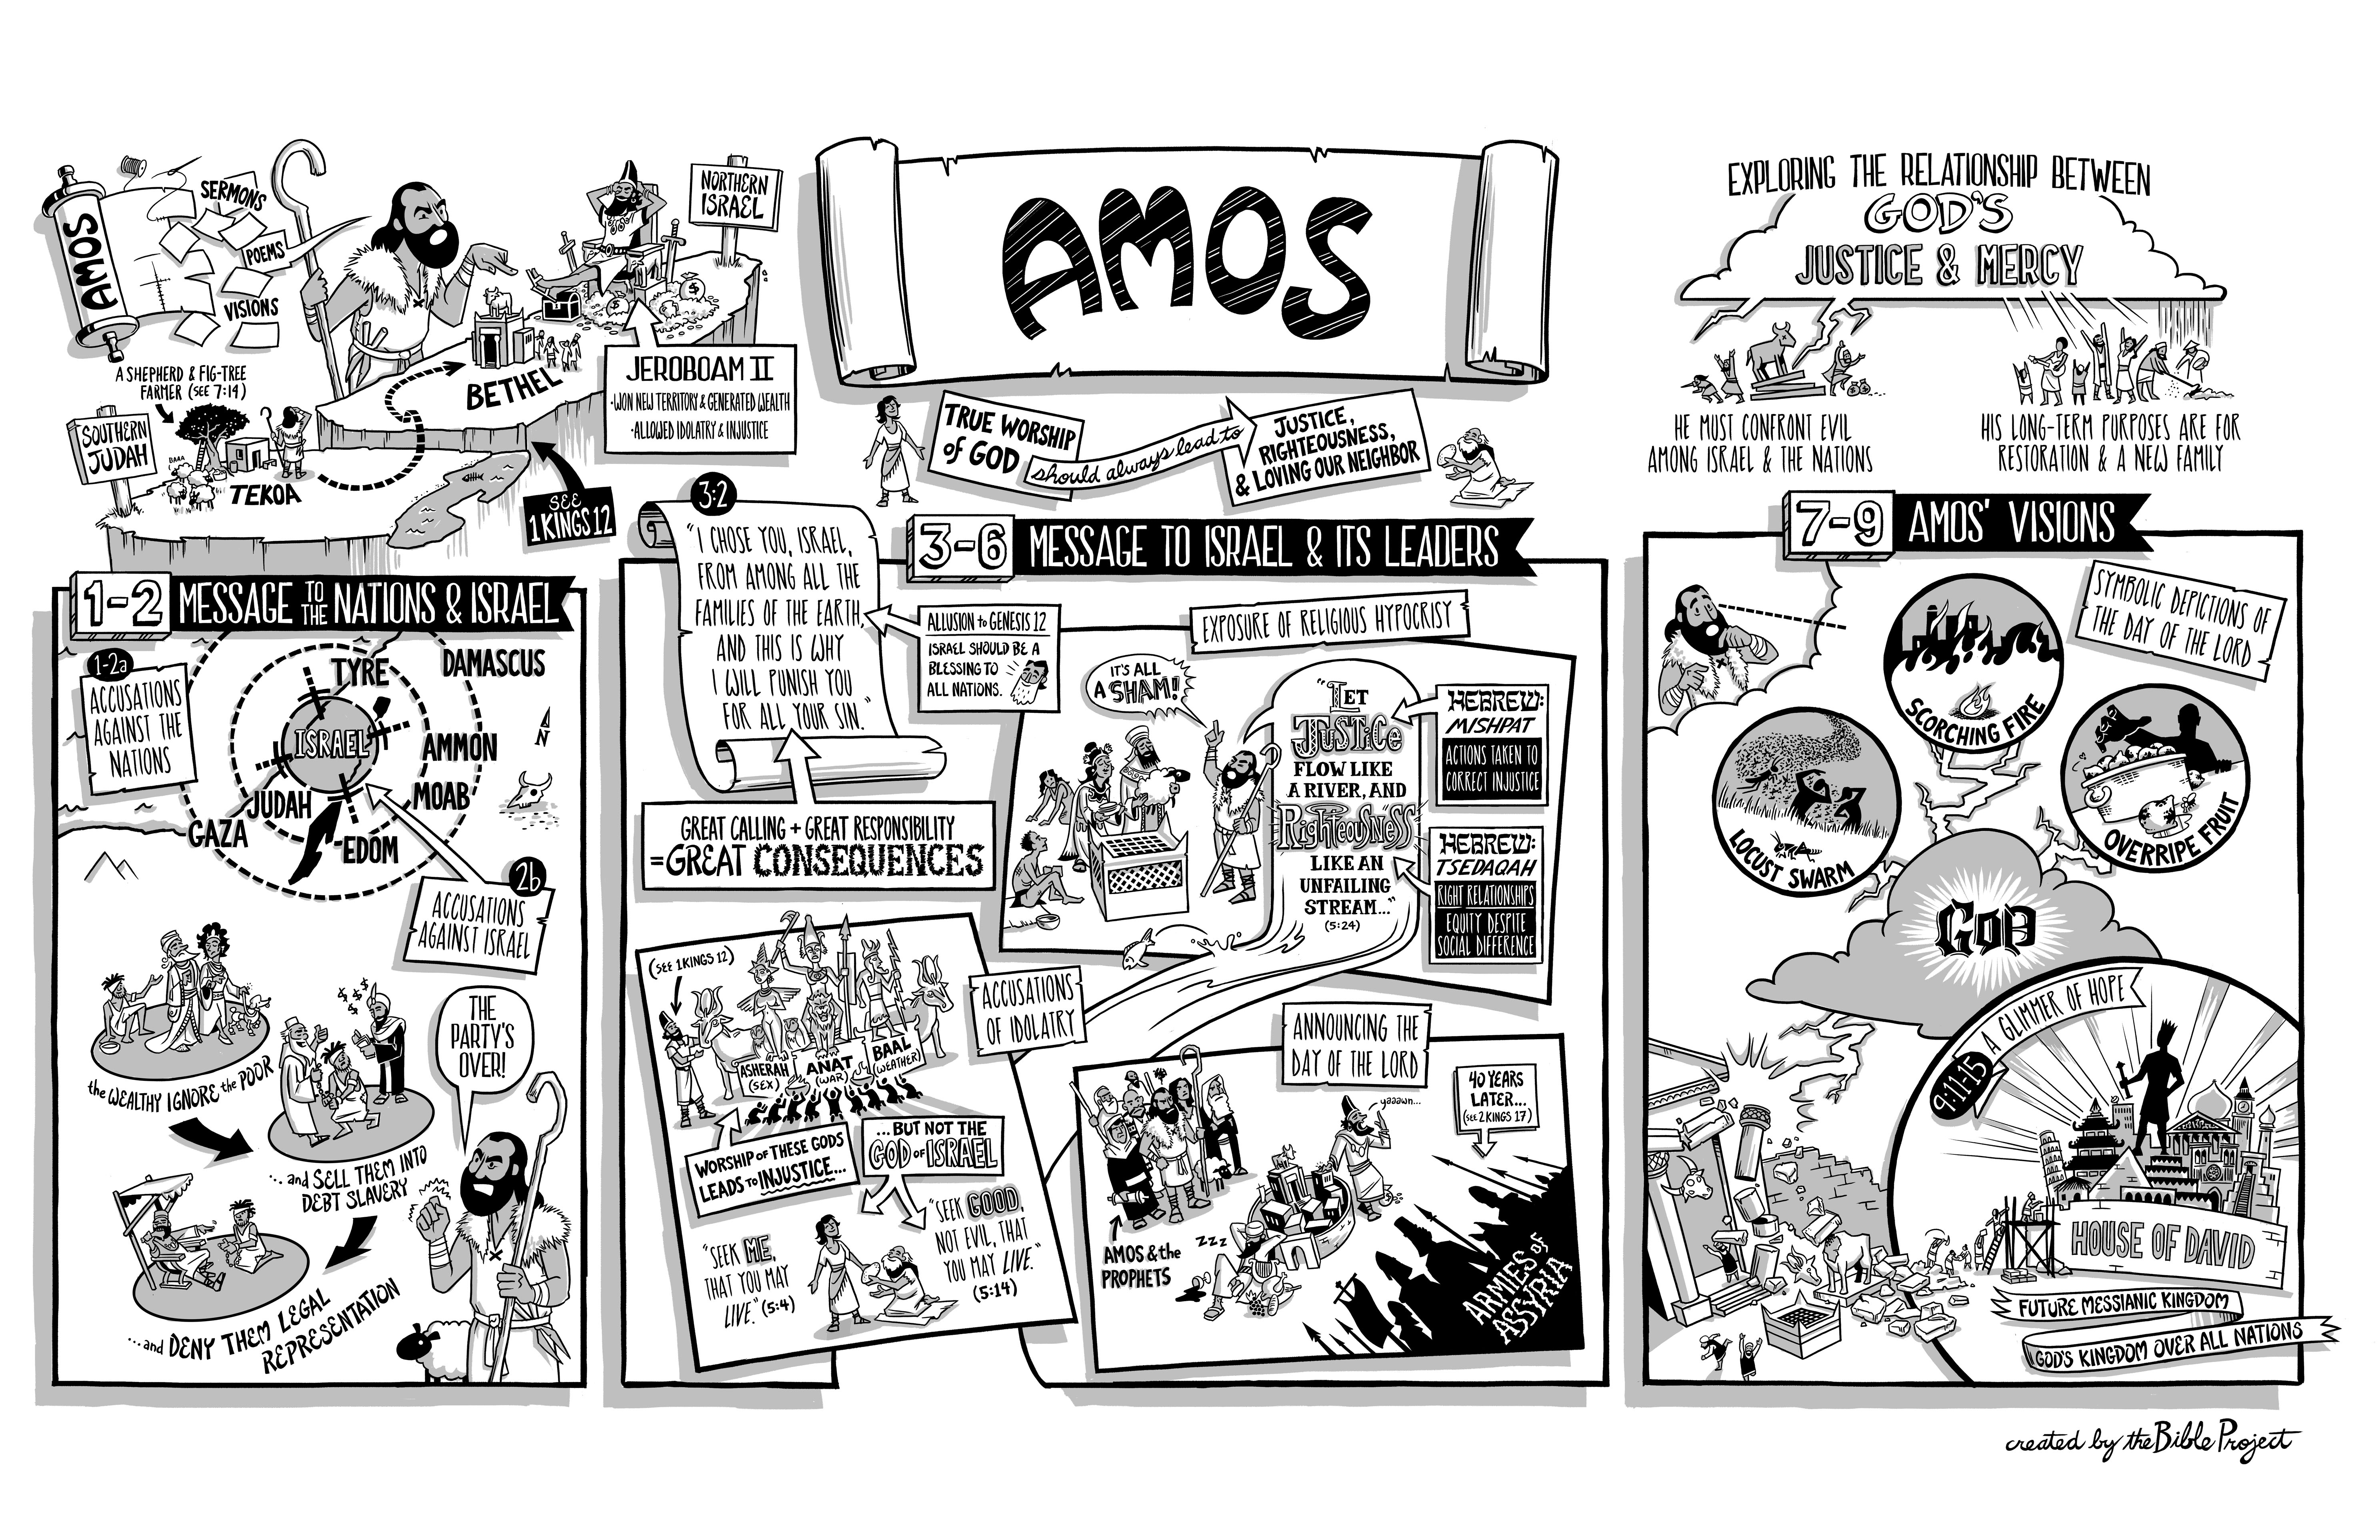 AMOS
SERMONS
POEMS
VISIONS
A SHEPHERD & FIG-TREE
FARMER (SEE 7:14)
SOUTHERN
JUDAH
BAAA
TEKOA
BETHEL
NORTHERN
ISRAEL
JEROBOAM II
•WON NEW TERRITORY & GENERATED WEALTH
•ALLOWED IDOLATRY & INJUSTICE
SEE
1 KINGS 12
AMOS
TRUE WORSHIP
of GOD
should always lead to
JUSTICE,
RIGHTEOUSNESS,
& LOVING OUR NEIGHBOR
EXPLORING THE RELATIONSHIP BETWEEN
GOD'S
JUSTICE & MERCY
HE MUST CONFRONT EVIL
AMONG ISRAEL & THE NATIONS
HIS LONG-TERM PURPOSES ARE FOR
RESTORATION & A NEW FAMILY
1-2 MESSAGE TO THE NATIONS & ISRAEL
1-2a
ACCUSATIONS
AGAINST THE
NATIONS
TYRE
DAMASCUS
ISRAEL
AMMON
N
JUDAH
MOAB
GAZA
EDOM
2b
ACCUSATIONS
AGAINST ISRAEL
the WEALTHY IGNORE the POOR
$ $ $ $ $
...and SELL THEM INTO
DEBT SLAVERY
...and DENY THEM LEGAL
REPRESENTATION
THE
PARTY'S
OVER!
3-6 MESSAGE TO ISRAEL & ITS LEADERS
3:2
"I CHOSE YOU, ISRAEL,
FROM AMONG ALL THE
FAMILIES OF THE EARTH,
AND THIS IS WHY
I WILL PUNISH YOU
FOR ALL YOUR SIN."
ALLUSION to GENESIS 12
ISRAEL SHOULD BE A
BLESSING TO
ALL NATIONS.
GREAT CALLING + GREAT RESPONSIBILITY
= GREAT CONSEQUENCES
EXPOSURE OF RELIGIOUS HYPOCRISY
IT'S ALL
A SHAM!
"LET
JUSTICE
FLOW LIKE
A RIVER, AND
RIGHTEOUSNESS
LIKE AN
UNFAILING
STREAM..."
(5:24)
HEBREW:
MISHPAT
ACTIONS TAKEN TO
CORRECT INJUSTICE
HEBREW:
TSEDAQAH
RIGHT RELATIONSHIPS
EQUITY DESPITE
SOCIAL DIFFERENCE
(SEE 1 KINGS 12)
ASHERAH
(SEX)
ANAT
(WAR)
BAAL
(WEATHER)
ACCUSATIONS
OF IDOLATRY
WORSHIP of THESE GODS
LEADS to INJUSTICE...
...BUT NOT THE
GOD of ISRAEL
"SEEK ME,
THAT YOU MAY
LIVE." (5:4)
"SEEK GOOD,
NOT EVIL, THAT
YOU MAY LIVE."
(5:14)
ANNOUNCING THE
DAY OF THE LORD
yaaawn...
40 YEARS
LATER...
(SEE 2 KINGS 17)
AMOS & the
PROPHETS
ZZZ
ARMIES of
ASSYRIA
7-9 AMOS' VISIONS
SYMBOLIC DEPICTIONS OF
THE DAY OF THE LORD
SCORCHING FIRE
LOCUST SWARM
OVERRIPE FRUIT
GOD
9:11-15
A GLIMMER OF HOPE
HOUSE OF DAVID
FUTURE MESSIANIC KINGDOM
GOD'S KINGDOM OVER ALL NATIONS
created by theBibleProject